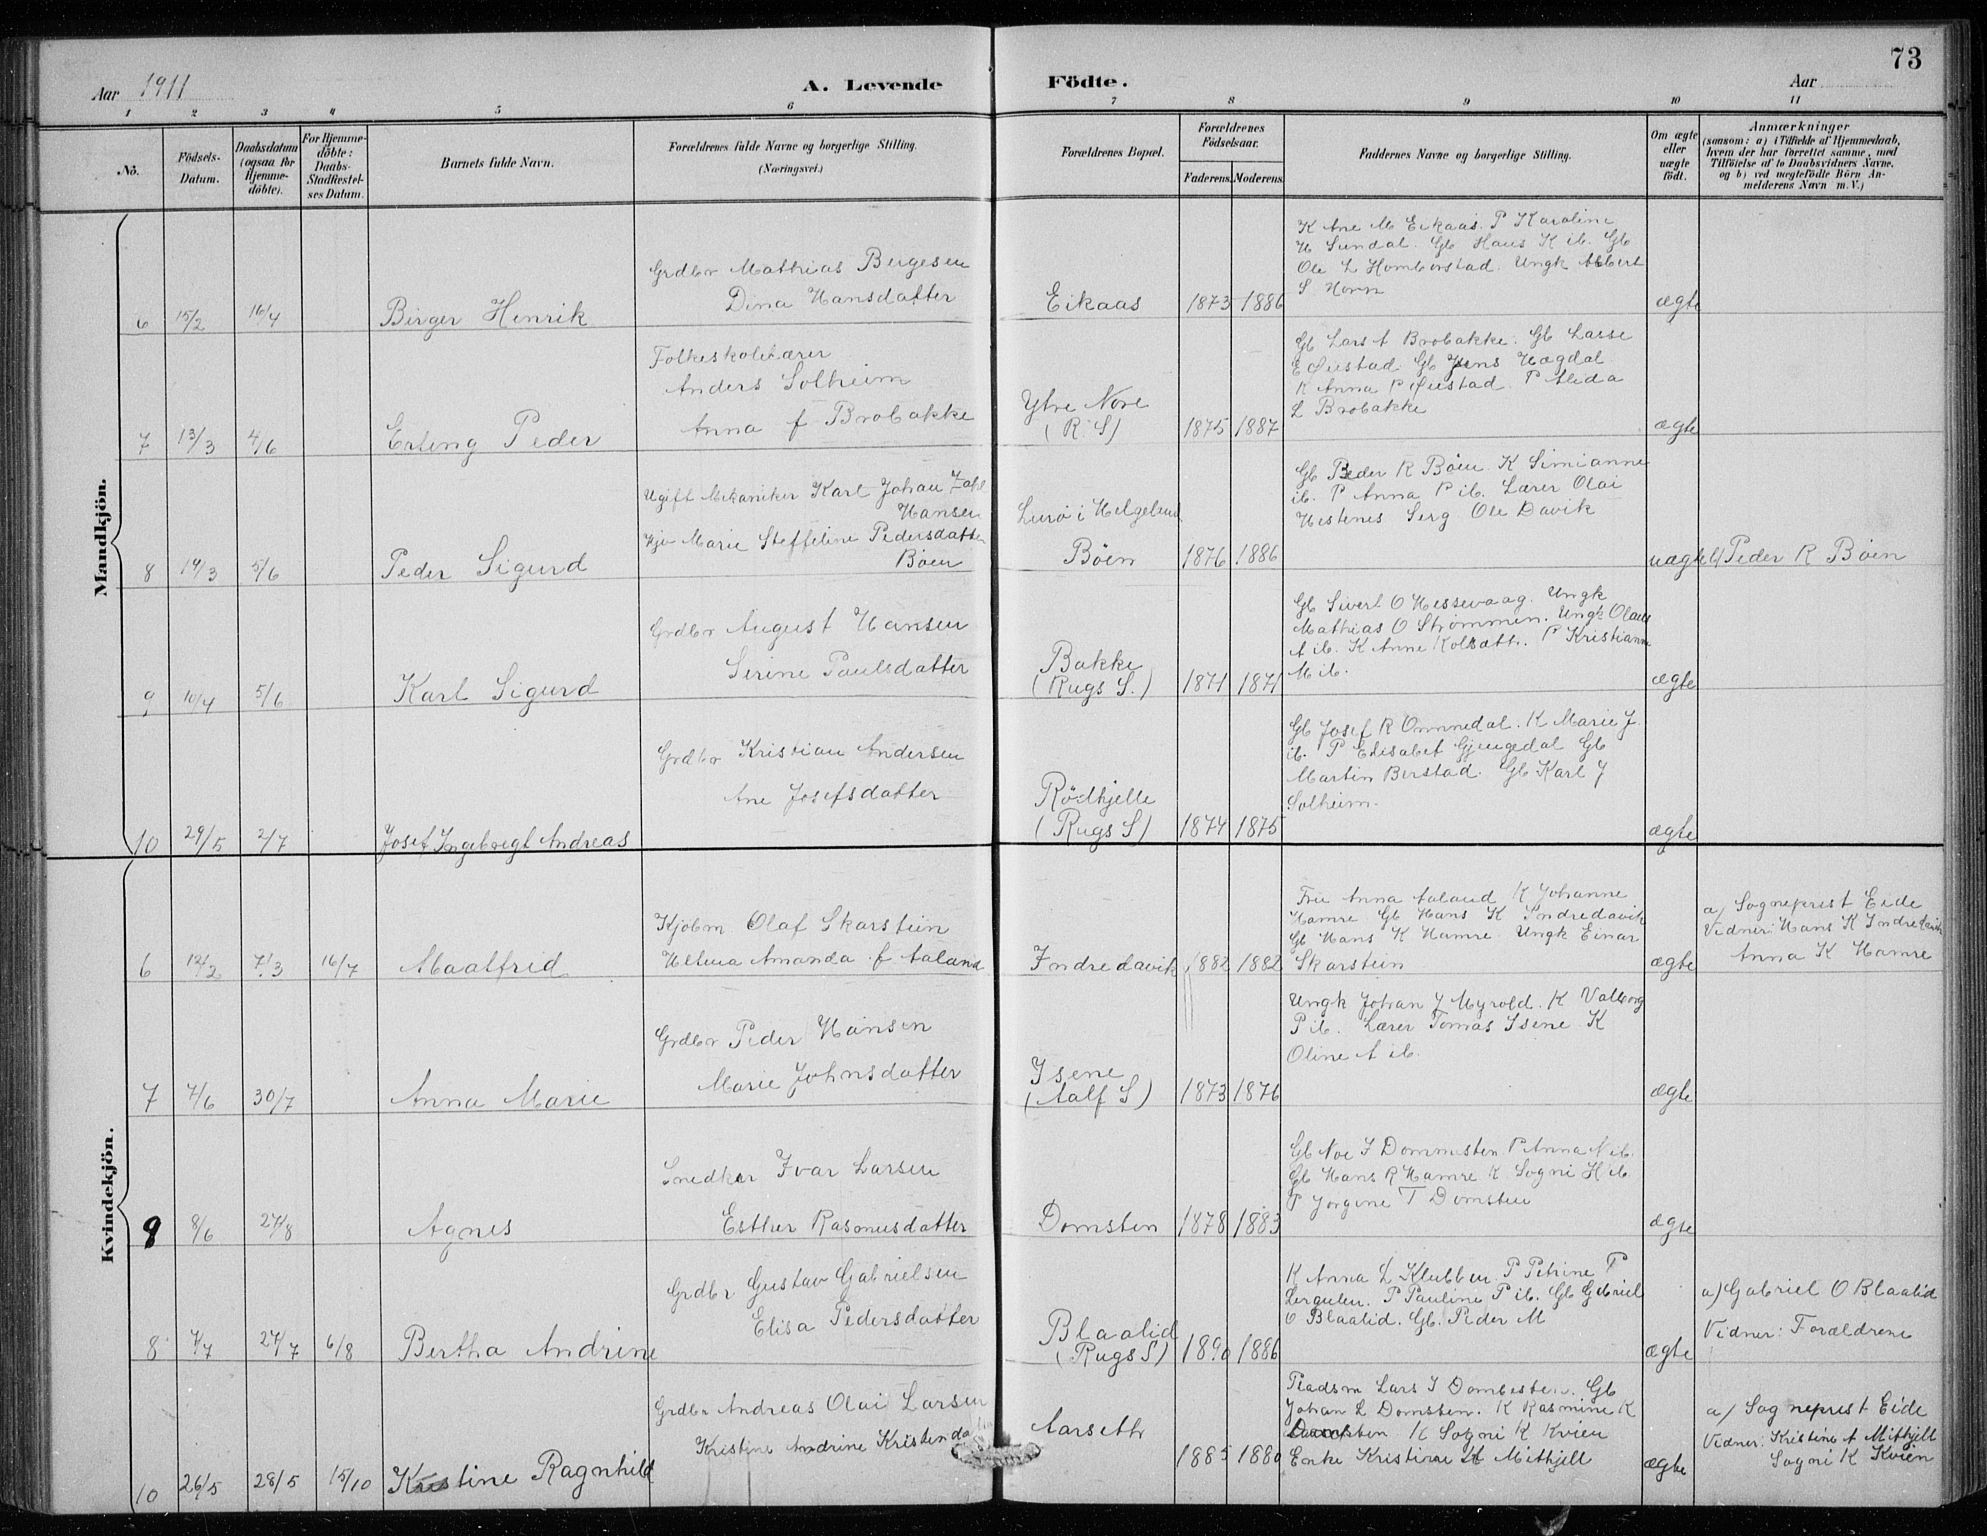 73
Aar 1911
A. Levende
Födte.
Aar
1 2 3 4 5 6 7 8 9 10 11
No.
Födsels-Datum.
Daabsdatum (ogsaa for Hjemme-döbte).
For Hjemme-döbte: Daabs-Stadfæstel-ses Datum.
Barnets fulde Navn.
Forældrenes fulde Navne og borgerlige Stilling.
(Næringsvei.)
Forældrenes Bopæl.
Forældrenes Födselsaar.
Faderens. Moderens.
Faddernes Navne og borgerlige Stilling.
Om ægte eller uægte födt.
Anmærkninger
(saasom: a) i Tilfælde af Hjemmedaab, hvem der har forrettet samme, med Tilföielse af to Daabsvidners Navne, og b) ved uægtefödte Börn An-melderens Navn m. V.)
Mandkjön.
6 15/2 16/4 Birger Henrik
Grdbr Mathias Birgesen
Dina Hansdatter
Eikaas 1873 1886
K Ane M Eikaas. P Karoline
H Sundal. Gb Hans K ib. Gb
Ole L Hombørstad. Ungk Albert
S Horn
ægte
7 13/3 4/6 Erling Peder
Folkeskolelærer
Anders Solheim
Anna f Brobakke
Ytre Nore
(R. S) 1875 1887
Gb Lars A Brobakke. Gb Lasse
E Øiestad. Gb Jens Hægdal.
K Anna P Øiestad. P Alida
L Brobakke
ægte
8 19/3 5/6 Peder Sigurd
Ugift Mekaniker Karl Johan Zahl
Hansen
Marie Steffeline Pedersdatter
Bøen
Lurø i Helgeland
Bøen 1876 1886
Gb Peder R Bøen. K Simianne
ib. P Anna P ib. Lærer Olai
Hestenes Serg Ole Davik
uægte b/ Peder R Bøen
9 10/4 5/6 Karl Sigurd
Grdbr August Hansen
Serine Paulsdatter
Bakke
(Rugs S.) 1871 1871
Gb Sivert O Hessevaag. Ungk
Mathias O Strømmen. Ungk Olaus
A ib. K Anne Kolsæth. P Kristianne
M ib.
ægte
10 29/5 2/7 Josef Ingebregt Andreas
Grdbr Kristian Andersen
Ane Josefsdatter
Rødhjelle
(Rugs S) 1874 1875
Gb Josef R Ommedal. K Marie J.
ib. P Elisabet Gjengedal Gb
Martin Berstad. Gb Karl J
Solheim.
ægte
Kvindekjön.
6 12/2 7/3 16/7 Maalfrid
Kjøbm Olaf Skarstein
Helma Amanda f Aaland
Indredavik 1882 1882
Fru Anna Aaland K Johanne
Hamre Gb Hans K Indredavik
Gb Hans K Hamre Ungk Einar
Skarstein
ægte
a/ Sogneprest Eide
Vidner: Hans K Indredavik
Anna K Hamre
7 7/6 30/7 Anna Marie
Grdbr Peder Hansen
Marie Johnsdatter
Isene
(Aalf S) 1873 1876
Ungk Johan J Myrold. K Valborg
P ib. Lærer Tomas Isene K
Oline A ib.
ægte
9 8/6 27/8 Agnes
Snedker Ivar Larsen
Esther Rasmusdatter
Domsten 1878 1883
Gb Noe I Dommesten P Anna N ib.
Gb Hans R Hamre K Sogni H ib
P Jorgine T Domsten
ægte
8 7/7 27/7 6/8 Bertha Andrine
Grdbr Gustav Gabrielsen
Elisa Pedersdatter
Blaalid
(Rugs S) 1890 1886
K Anna L Klubben. P Petrine P
Lergulen. P Pauline P ib. Gb Gabriel
O Blaalid. Gb. Peder M
ægte
a) Gabriel O Blaalid
Vidner: Forældrene
10 26/5 28/5 15/10 Kristine Ragnhild
Grdbr Andreas Olai Larsen
Kristine Andrine
Aarseth
1885 1880
Pladsm Lars I Dombesten. Gb
Johan L Domsten. K Rasmine K
Domsten K Sogni K Kvien
Enke Kristine A Mithjell
ægte
a/ Sogneprest Eide
Vidner: Kristine A Mithjell
Sogni K Kvien